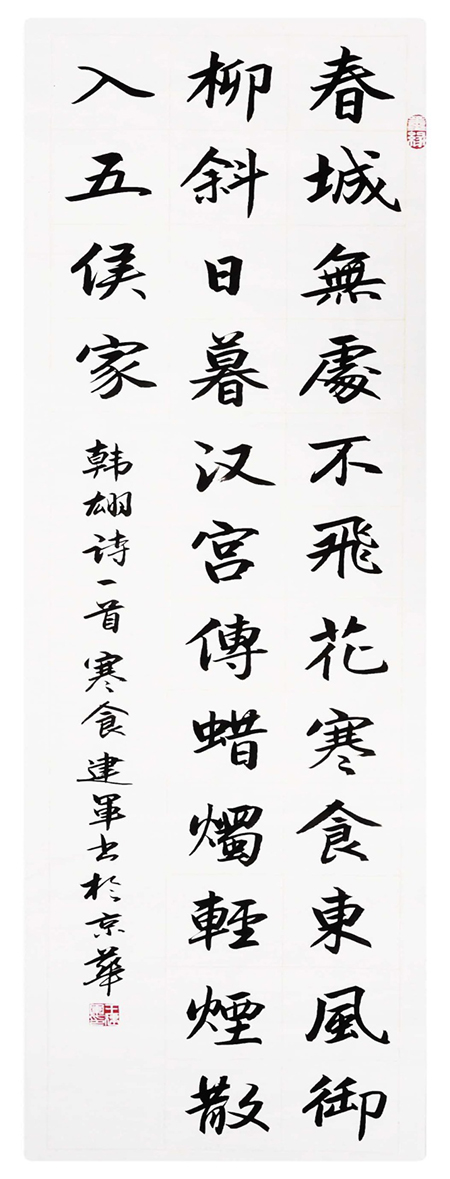 春城無處不飛花寒食東風御
柳斜日暮汉宫傳蜡燭輕煙散
入五侯家
韩翃诗一首寒食建军书於京華